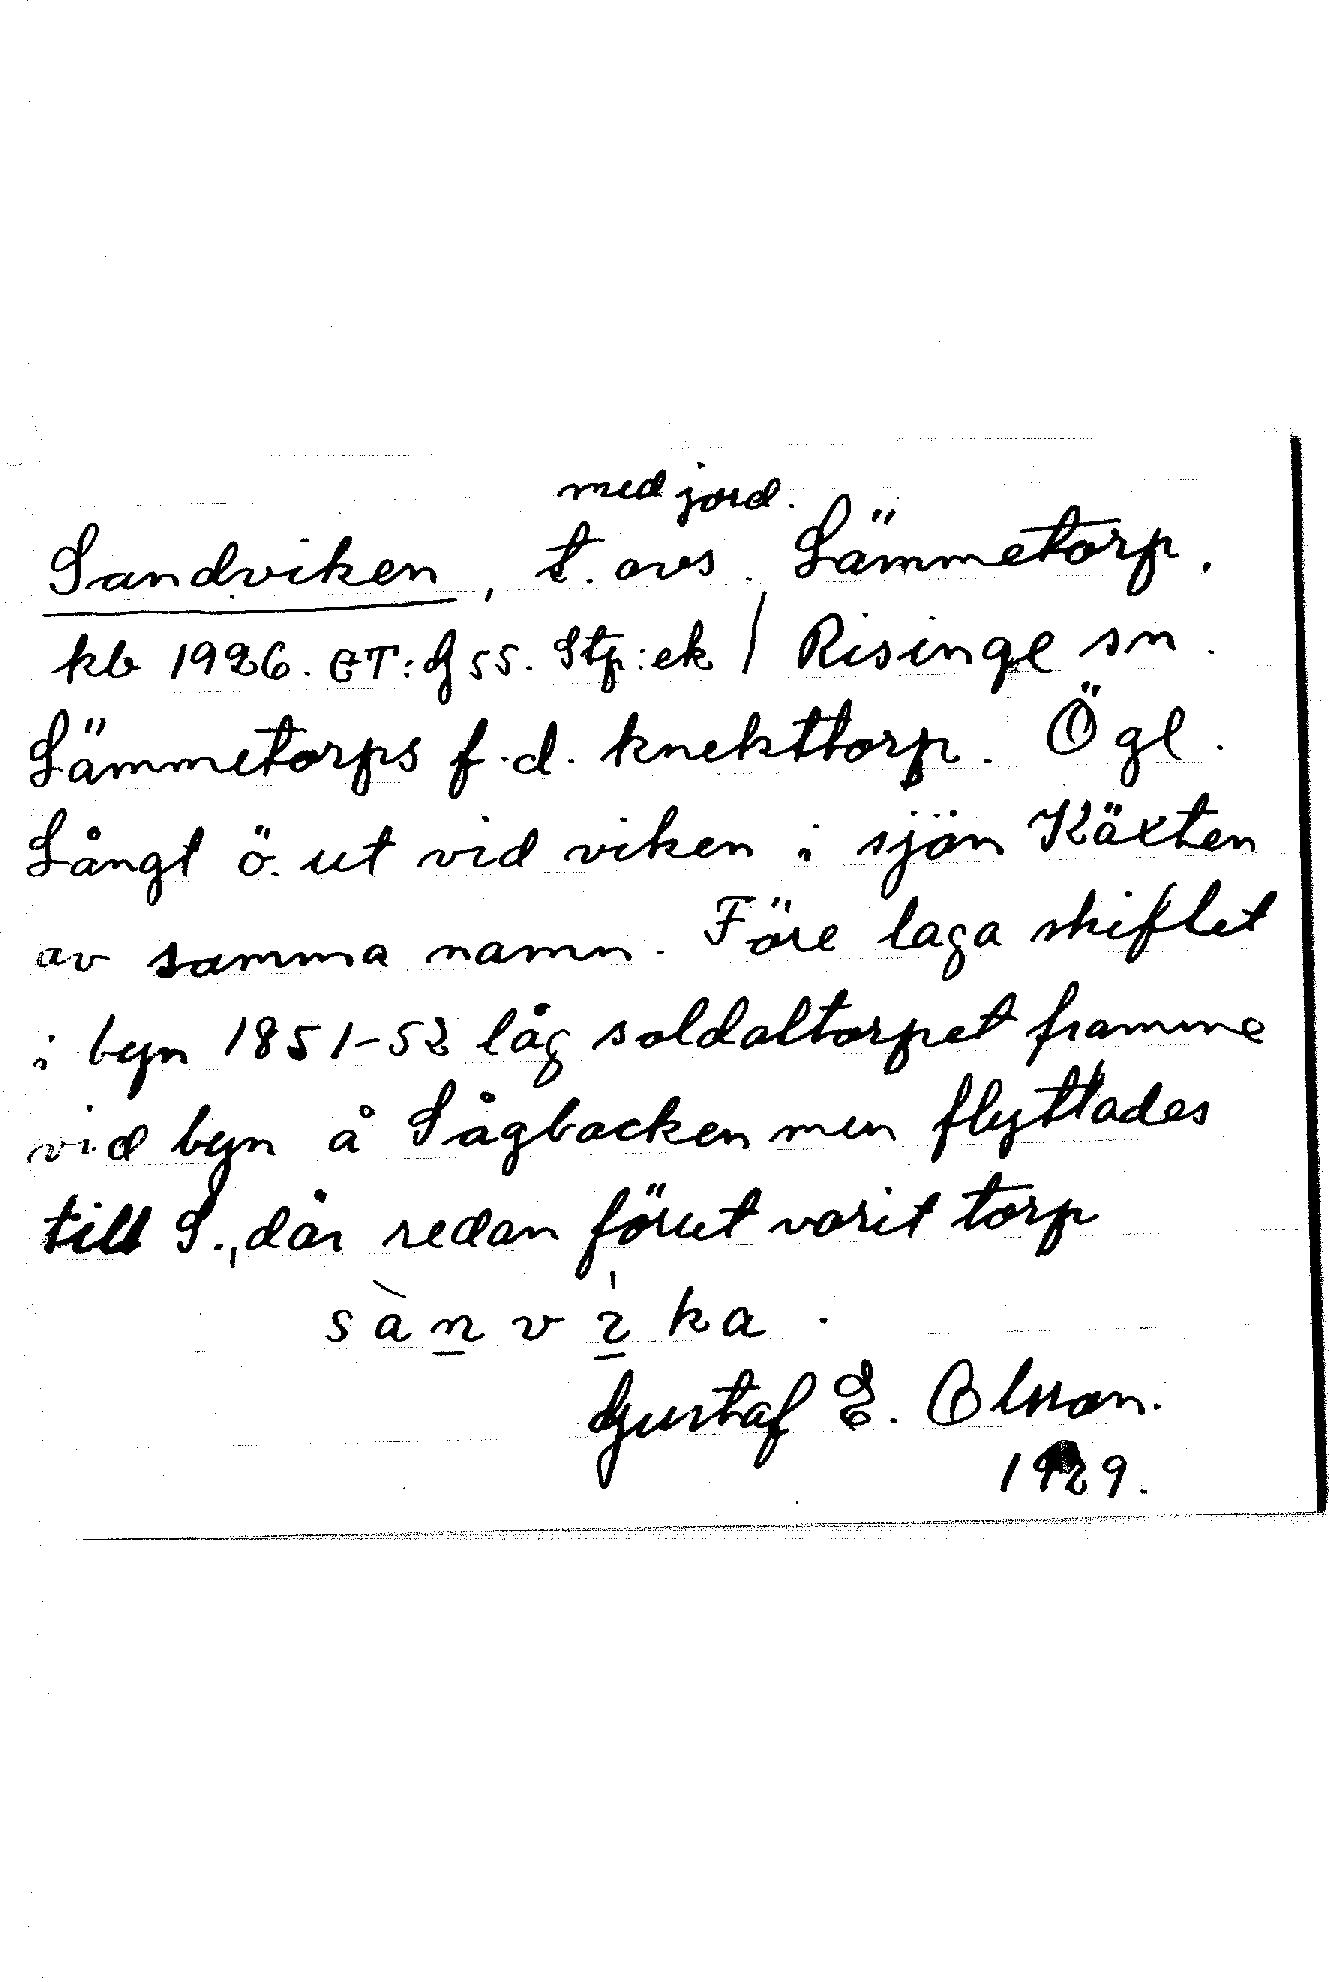 med jord.
Sandviken, t. avs. Lämmetorp.
kb 1926. GT: G 55. Stp: ek / Risinge sn.
Lämmetorps f.d. knekttorp. Ögl.
Långt ö. ut vid viken i sjön Käxten
av samma namn. Före laga skiftet
i byn 1851-52 låg soldattorpet framme
vid byn å Sågbacken men flyttades
till S., där redan förut varit torp
sànvika.
Gustaf E. Olsson.
1929.